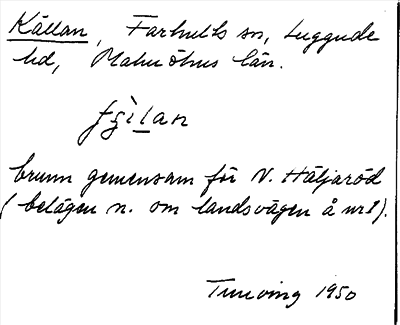 Källan, Farhults sn, Luggude
hd, Malmöhus län.
brunn gemensam för N. Häljaröd
(belägen n. om landsvägen å nr 1).
1950